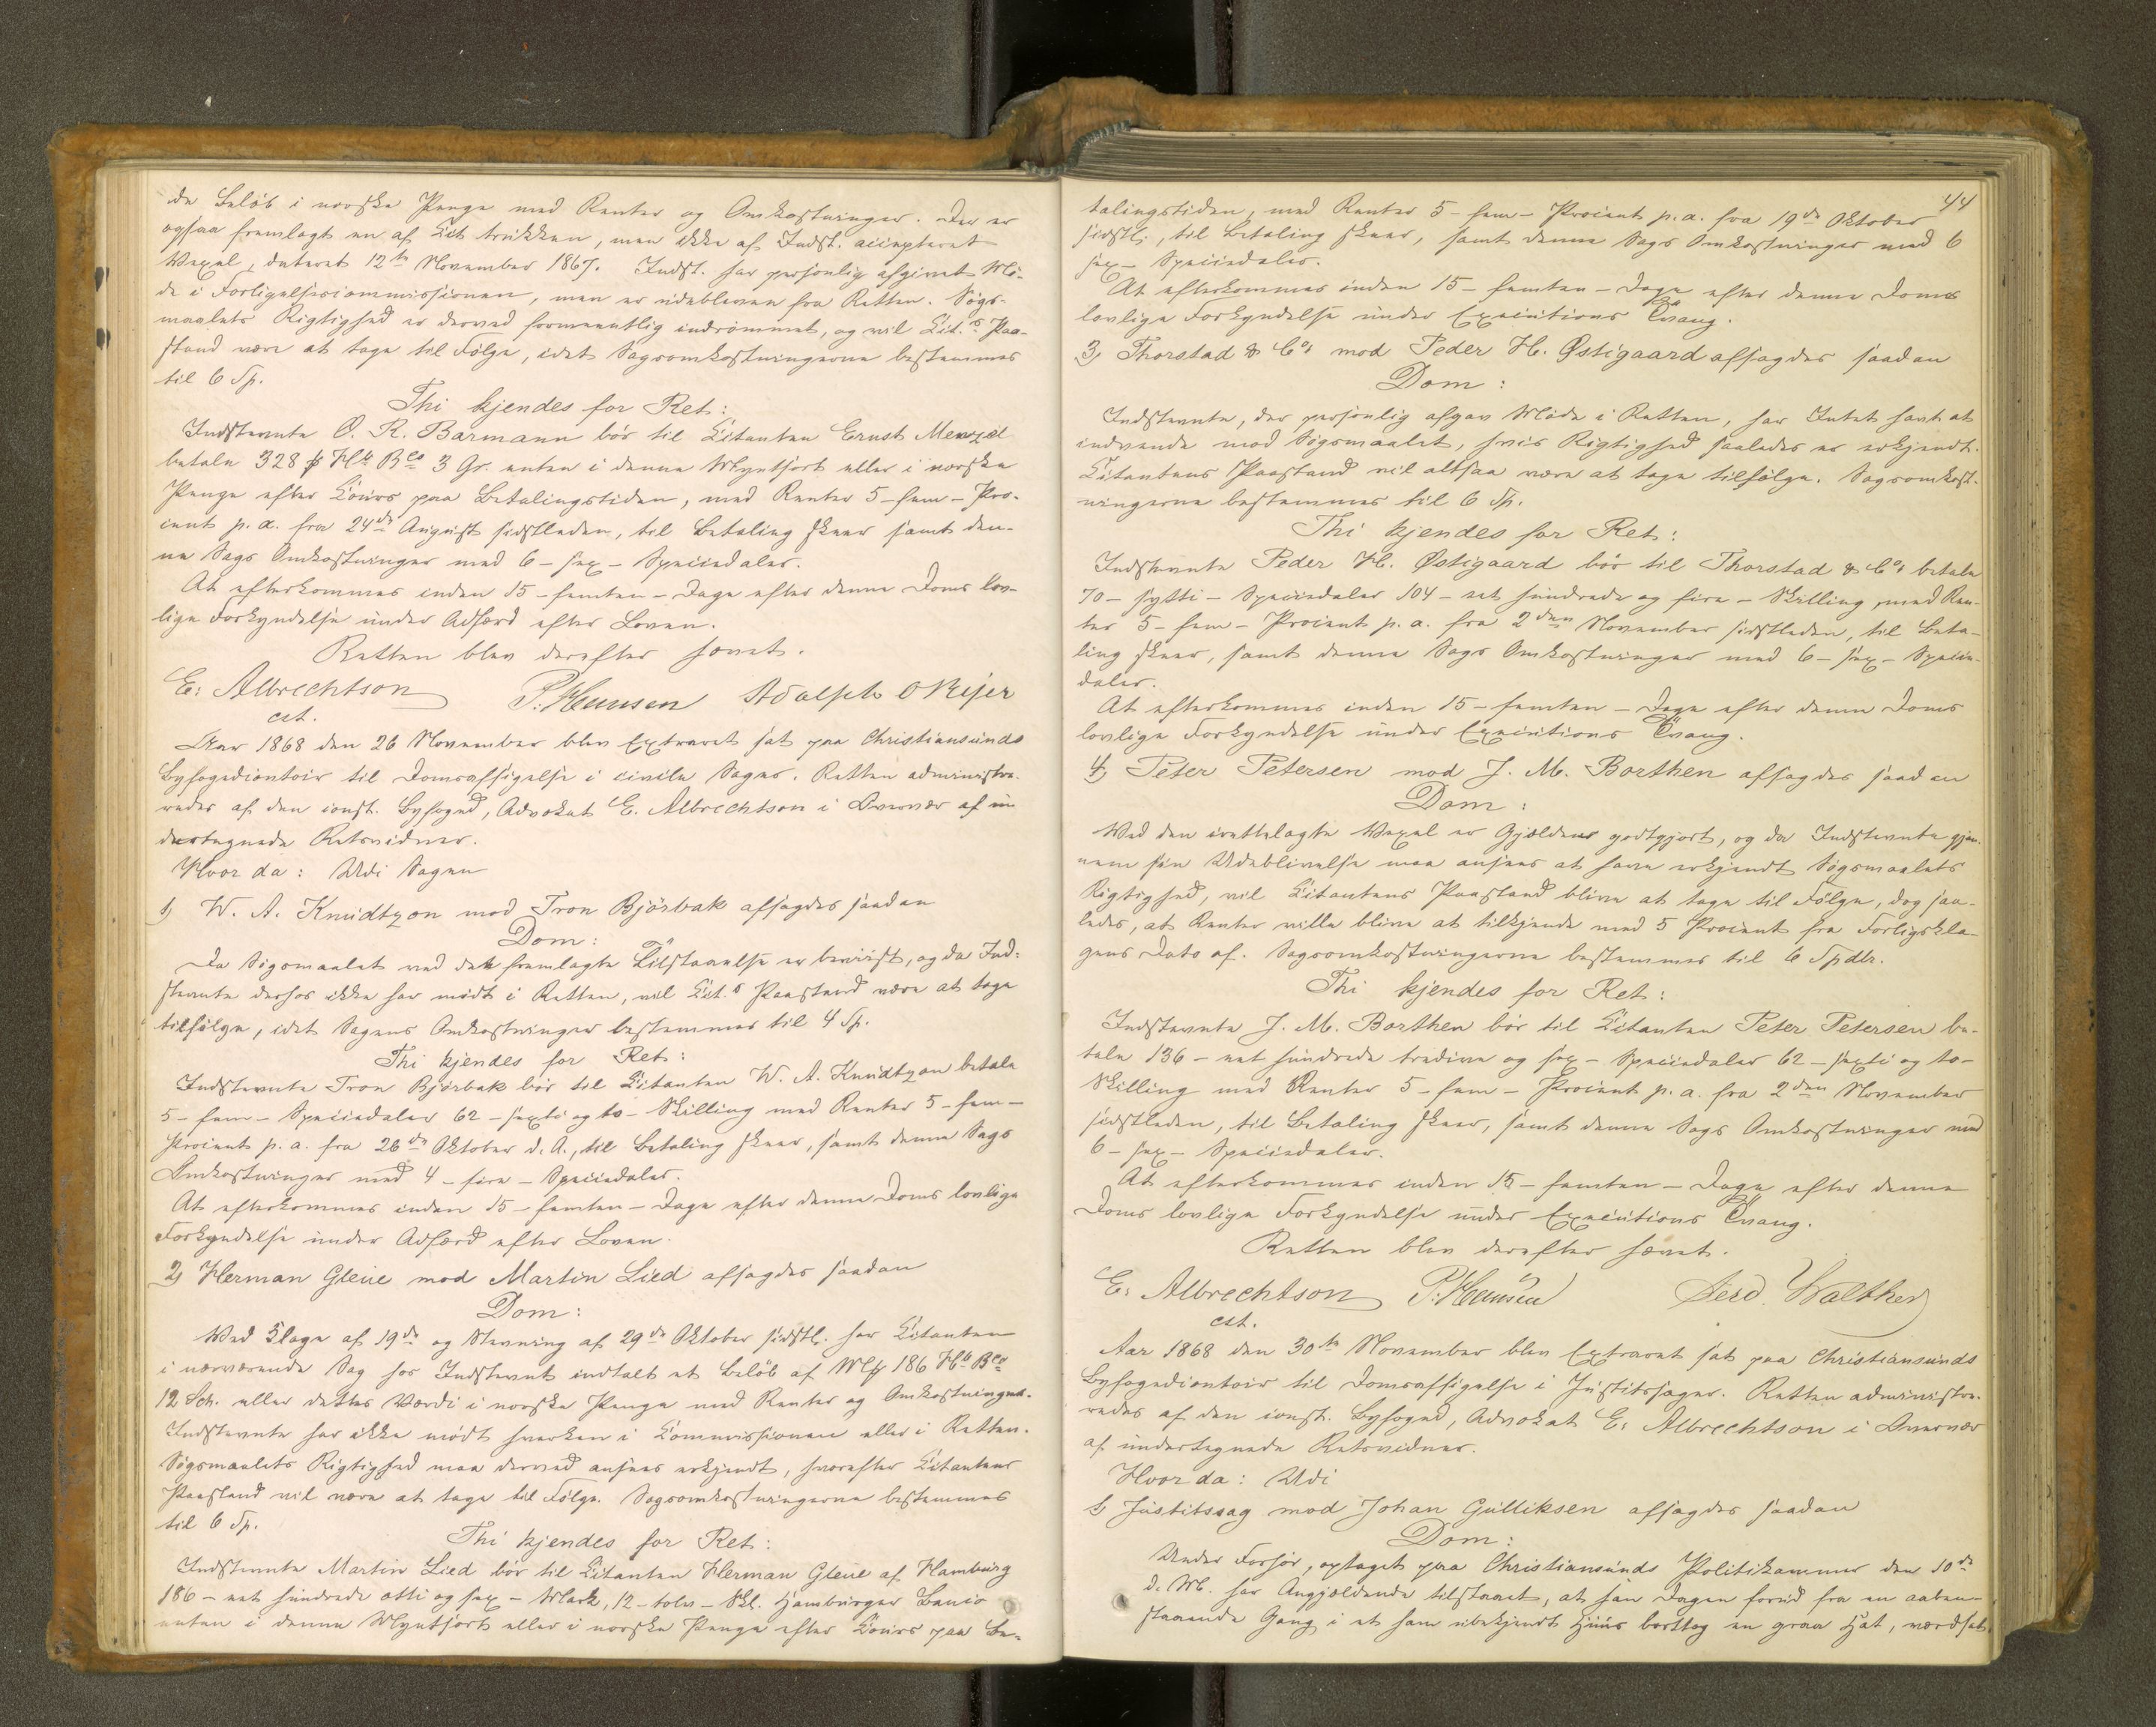 de Beløb i norske Penge med Renter og Omkostninger. Der er
ogsaa fremlagt en af Cit. trukken, men ikke af Indst. accepteret
Vexel, dateret 12te November 1867. Indst. har personlig afgivet Mö-
de i Forligelsescommissionen, men er udebleven fra Retten. Sögs-
maalets Rigtighed er derved formeentlig indrömmet, og vil Cit.s Paa-
stand være at tage til Følge, idet Sagsomkostningerne bestemmes
til 6 Sp.
Thi kjendes for Ret:
Indstevnte O. R. Barmann bör til Citanten Ernst Menzel
betale 328 Hb Bco 3 Gr. enten i denne Myntsort eller i norske
Penge efter Cours paa Betalingstiden, med Renter 5 - fem - Pro-
cent p. a. fra 24de August sidstleden, til Betaling skeer samt den-
ne Sags Omkostninger med 6 - sex - Speciedaler.
At efterkommes inden 15 - femten - Dage efter denne Doms lov-
lige Forkyndelse under Adfærd efter Loven.
Retten blev derefter hævet.
E. Albrechtson P. Hansen Adolph O Meijer
cst.
Aar 1868 den 26 November blev Extraret sat paa Christiansunds
Byfogedcontoir til Domsafsigelse i civile Sager. Retten administre-
redes af den const. Byfoged, Advokat E. Albrechtson i Overvær af un
dertegnede Retsvidner.
Hvor da: Udi Sagen
1) W. A. Knudtzon mod Tron Björbak afsagdes saadan
Dom:
Da Sögsmaalet ved den fremlagte Tilstaaelse er beviist, og da Ind-
stevnte derhos ikke har mødt i Retten, vil Cit.s Paastand være at tage
tilfölge, idet Sagens Omkostninger bestemmes til 4 Sp.
Thi kjendes for Ret:
Indstevnte Tron Björbak bör til Citanten W. A. Knudtzon betale
5 - fem - Speciedaler 62 - sexti og to - Skilling med Renter 5 - fem -
Procent p. a. fra 26de Oktober d. A., til Betaling skeer, samt denne Sags
Omkostninger med 4 - fire - Speciedaler.
At efterkommes inden 15 - femten - Dage efter denne Doms lovlige
Forkyndelse under Adfærd efter Loven.
2) Herman Gleue mod Martin Lied afsagdes saadan
Dom:
Ved Klage af 19de og Stevning af 29de Oktober sidstl. har Citanten
i nærværende Sag hos Indstevnte indtalt et Beløb af 186 Hb Bco
12 Sch. eller dettes Værdi i norske Penge med Renter og Omkostninger.
Indstevnte har ikke mödt hverken i Commissionen eller i Retten.
Sögsmaalets Rigtighed maa derved ansees erkjendt, hvorefter Citantens
Paastand vil være at tage til Følge. Sagsomkostningerne bestemmes
til 6 Sp.
Thi kjendes for Ret:
Indstevnte Martin Lied bör til Citanten Herman Gleue af Hamburg
186 - eet hundrede otti og sex - Mark, 12 - tolv - Skl. Hamburger Banco
enten i denne Myntsort eller i norske Penge efter Cours paa Be-
44
talingstiden, med Renter 5 - fem - Procent p. a. fra 19de Oktober
sidstl., til Betaling skeer, samt denne Sags Omkostninger med 6
sex - Speciedaler.
At efterkommes inden 15 - femten - Dage efter denne Doms
lovlige Forkyndelse under Executions Tvang.
3) Thorstad & Co. mod Peder H. Østigaard afsagdes saadan
Dom:
Indstevnte, der personlig afgav Möde i Retten, har Intet havt at
indvende mod Sögsmaalet, hvis Rigtighed saaledes er erkjendt.
Citantens Paastand vil altsaa være at tage tilfölge. Sagsomkost-
ningerne bestemmes til 6 Sp.
Thi kjendes for Ret:
Indstevnte Peder H. Østigaard bör til Thorstad & Co. betale
70 - sytti - Speciedaler 104 - eet hundrede og fire - Skilling, med Ren-
ter 5 - fem - Procent p. a. fra 2den November sidstleden, til Beta-
ling skeer, samt denne Sags Omkostninger med 6 - sex - Specie-
daler.
At efterkommes inden 15 - femten - Dage efter denne Doms
lovlige Forkyndelse under Executions Tvang.
4) Peter Petersen mod J. M. Borthen afsagdes saadan
Dom:
Ved den irettelagte Vexel er Gjælden godtgjort, og da Indstevnte gjen-
nem sin Udeblivelse maa ansees at have erkjendt Sögsmaalets
Rigtighed, vil Citantens Paastand blive at tage til Følge, dog saa-
ledes, at Renter ville blive at tilkjende med 5 Procent fra Forligskla-
gens Dato af. Sagsomkostningerne bestemmes til 6 Spdlr.
Thi kjendes for Ret:
Indstevnte J. M. Borthen bör til Citanten Peter Petersen be-
tale 136 - eet hundrede tredive og sex - Speciedaler 62 - sexti og to -
Skilling med Renter 5 - fem - Procent p. a. fra 2den November
sidstleden, til Betaling skeer, samt denne Sags Omkostninger med
6 - sex - Speciedaler.
At efterkommes inden 15 - femten - Dage efter denne
Doms lovlige Forkyndelse under Executions Tvang.
Retten blev derefter hævet.
E. Albrechtson P. Hansen Ferd. Walther
cst.
Aar 1868 den 30te November blev Extraret sat paa Christiansunds
Byfogedcontoir til Domsafsigelse i Justitssager. Retten administre-
redes af den const. Byfoged, Advokat E. Albrechtson i Overvær
af undertegnede Retsvidner.
Hvor da: Udi
1) Justitssag mod Johan Gulliksen afsagdes saadan
Dom:
Under Forhör, optaget paa Christiansunds Politikammer den 10de
d. M. har Angjældende tilstaaet, at han Dagen forud fra en aaben-
staaende Gang i et ham ubekjendt Huus borttog en graa Hat, værdsat